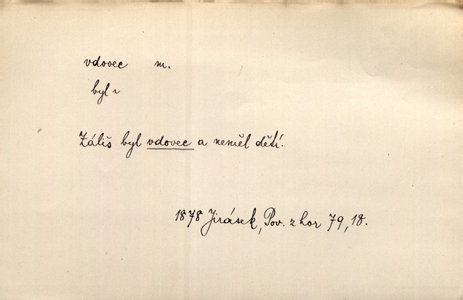 vdovec m.
byl ~
Záliš byl vdovec a neměl dětí.
1878 Jirásek, Pov. z hor 79, 18.